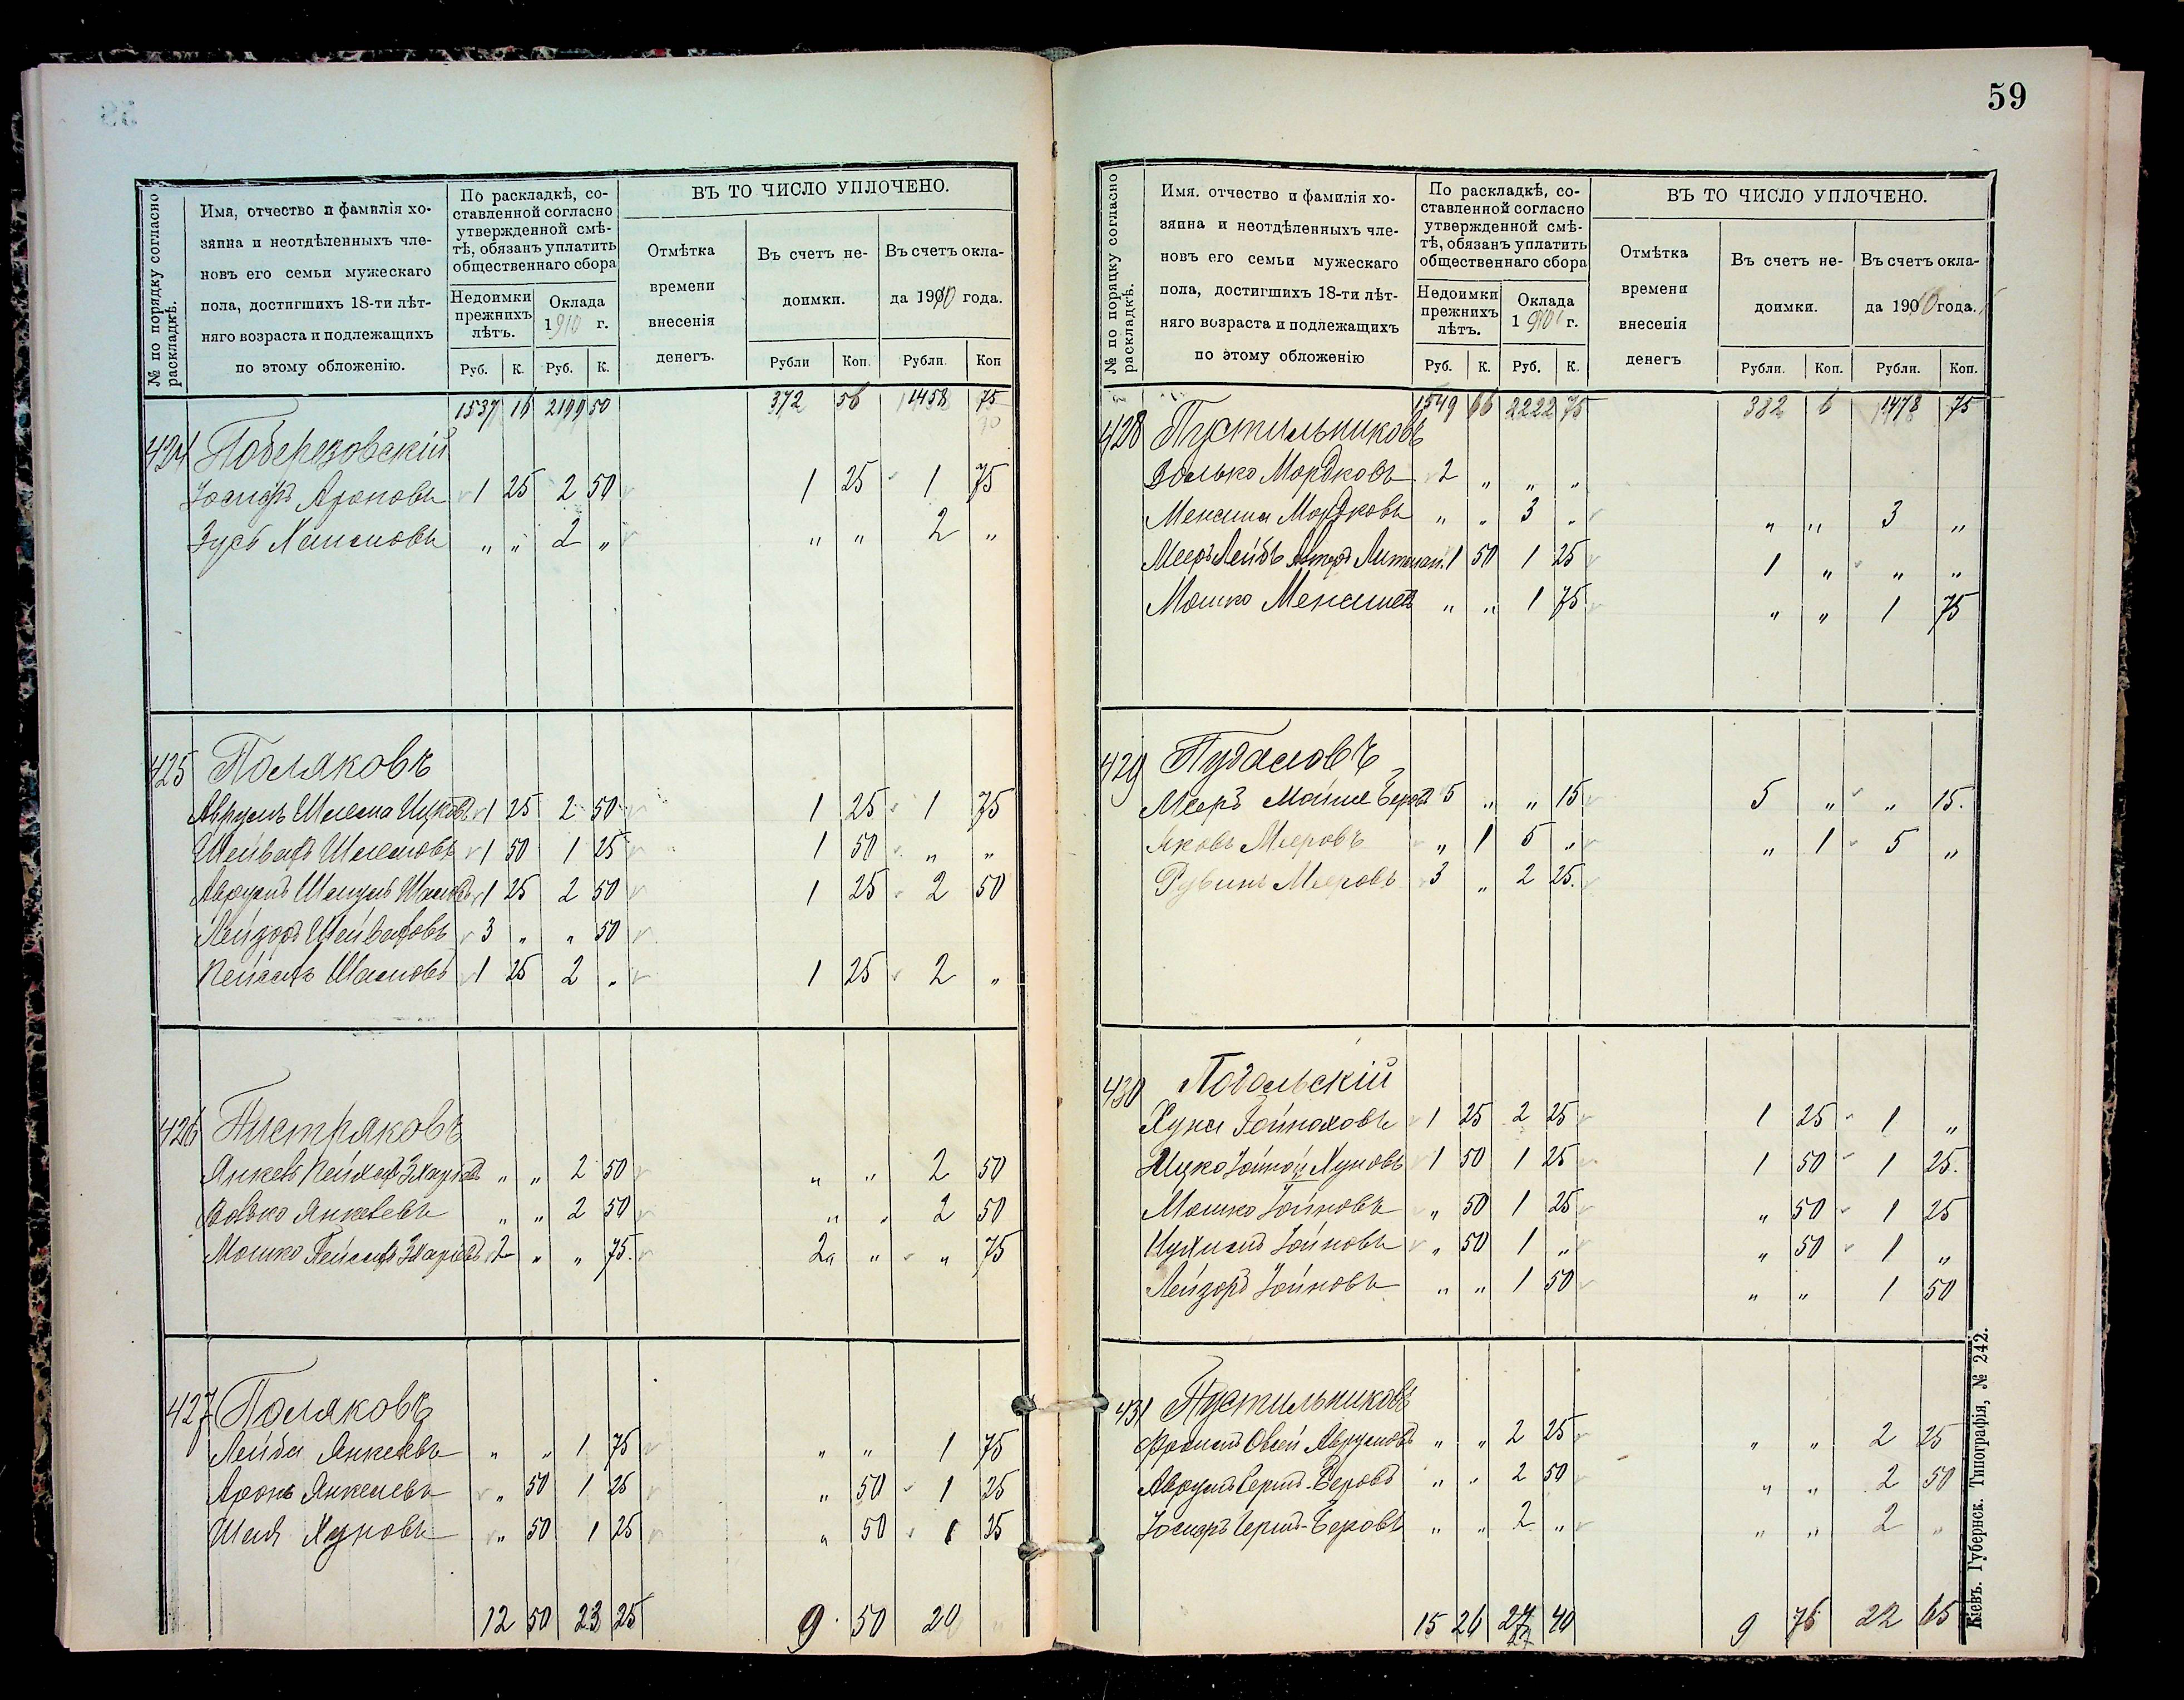 59
№ по порядку согласно раскладкѣ.
Имя, отчество и фамилія хо-
зяина и неотдѣленныхъ чле-
новъ его семьи мужескаго
пола, достигшихъ 18-ти лѣт-
няго возраста и подлежащихъ
по этому обложенію.
По раскладкѣ, со-
ставленной согласно
утвержденной смѣ-
тѣ, обязанъ уплатить
общественнаго сбора
Недоимки
прежнихъ
лѣтъ.
Оклада
1910 г.
Руб. К. Руб. К.
ВЪ ТО ЧИСЛО УПЛОЧЕНО.
Отмѣтка
времени
внесенія
денегъ.
Въ счетъ не-
доимки.
Въ счетъ окла-
да 1910 года.
Рубли Коп. Рубли. Коп
1537 16 2199 50 372 56 1458 75
424 Поберезовскій
Іосифъ Ароновъ 1 25 2 50 1 25 1 75
Зусь " " 2 " " " 2 "
425 Поляковъ
Аврумъ Шлема Ицковъ 1 25 2 50 1 25 1 75
Шлемовъ 1 50 1 25 1 50 " "
Аврумъ 1 25 2 50 1 25 2 50
Лейзоръ 3 " " 50
Пейсахъ 1 25 2 " 1 25 2 "
426 Пистряковъ
Янкель " " 2 50 " " 2 50
Волько Янкелевъ " " 2 50 " " 2 50
Мошко 2 " " 75 2 " " 75
427 Поляковъ
Лейба Янкелевъ " " 1 75 " " 1 75
Аронъ Янкелевъ " 50 1 25 " 50 1 25
Шая Хуновъ " 50 1 25 " 50 1 25
12 50 23 25 9 50 20
№ по порядку согласно раскладкѣ.
Имя. отчество и фамилія хо-
зяина и неотдѣленныхъ чле-
новъ его семьи мужескаго
пола, достигшихъ 18-ти лѣт-
няго возраста и подлежащихъ
по этому обложенію
По раскладкѣ, со-
ставленной согласно
утвержденной смѣ-
тѣ, обязанъ уплатить
общественнаго сбора
Недоимки
прежнихъ
лѣтъ.
Оклада
1910 г.
Руб. К. Руб. К.
ВЪ ТО ЧИСЛО УПЛОЧЕНО.
Отмѣтка
времени
внесенія
денегъ
Въ счетъ не-
доимки.
Въ счетъ окла-
да 1910 года.
Рубли. Коп. Рубли. Коп.
1549 66 2222 75 382 6 1478 75
428 Пустильниковъ
Волько Мордковъ 2 " " "
Менаша Мордковъ " " 3 " " " 3 "
Мееръ Лейбъ 1 50 1 25 1 " " "
Мошко Менашевъ " " 1 75 " " 1 75
429 Пудаловъ
Мееръ 5 " " 15 5 " " 15.
Яковъ Мееровъ " 1 5 " " 1 5 "
Рувинъ Мееровъ 3 " 2 25.
430 Подольскій
Хуна 1 25 2 25 1 25 1 "
Ицко Хуновъ 1 50 1 25 1 50 1 25.
Мошко Іойновъ " 50 1 25 " 50 1 25
Нухимъ Іойновъ " 50 1 " " 50 1 "
Лейзоръ Іойновъ " " 1 50 " " 1 50
431 Пустильниковъ
Фроимъ Овсей Аврумовъ " " 2 25 " " 2 25
Аврумъ Герш-Беровъ " " 2 50 " " 2 50
Іосифъ Герш-Беровъ " " 2 " " " 2 "
15 26 27 40 9 76 22 65
Кіевъ. Губернск. Типографія, № 242.